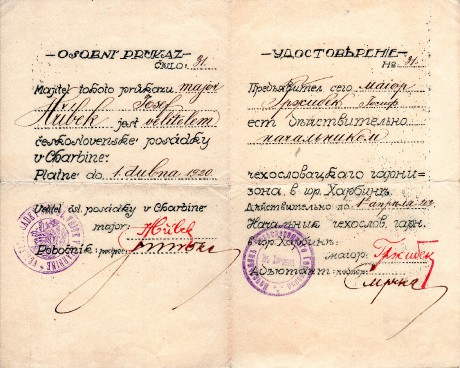 OSOBNÍ PRŮKAZ
ČÍSLO: 31.
Majitel tohoto průkazu major
Josef
Hřŭbek jest velitelem
československé posádky
v Charbině.
Platné do 1. dubna 1920.
Velitel čsl. posádky v Charbině
major: Hřŭbek
Pobočník:
УДОСТОВѢРЕНІЕ
№ 31.
Предъявитель сего маіор
Гржибек Іосиф
есть дѣйствительно
начальником
чехословацкаго гарни-
зона в гор. Харбинѣ.
Дѣйствительно по 1 апрѣля
Начальник чехослов. гарн.
в гор. Харбинѣ:
маіор: Гржибек
Адъютант: